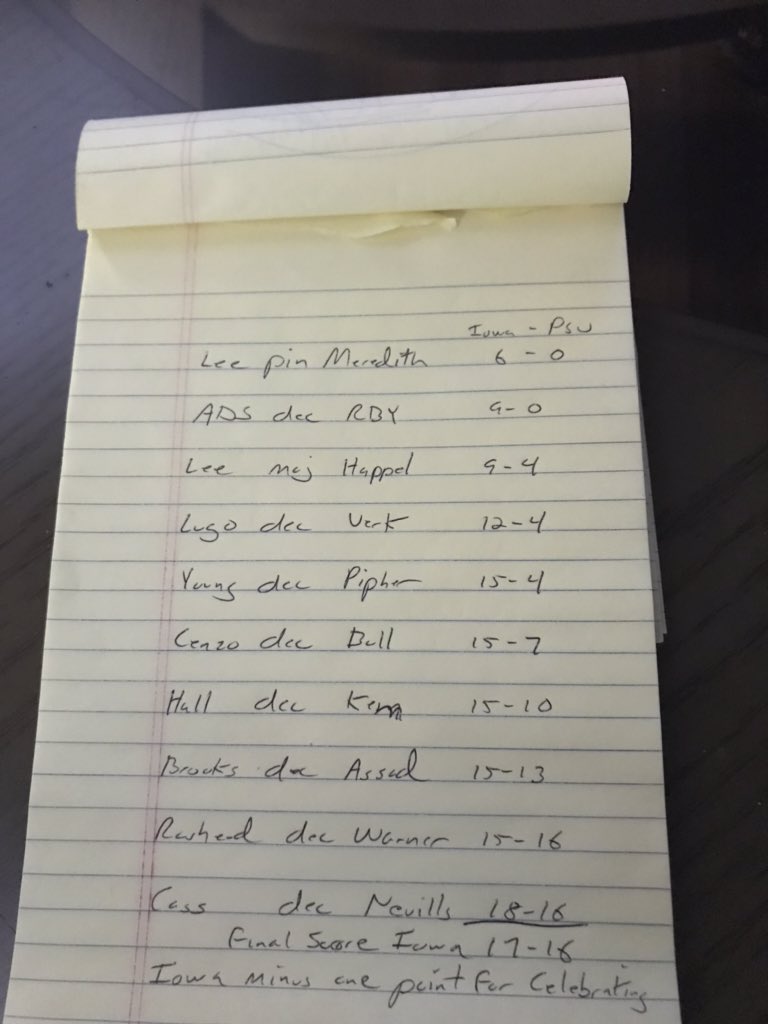 Iowa - PSU
Lee pin Meredith 6 - 0
ADS dec RBY 9-0
Lee maj Happel 9-4
Lugo dec Verk 12-4
Young dec Pipher 15-4
Cenzo dec Bull 15-7
Hall dec Kem 15-10
Brooks dec Assad 15-13
Rasheed dec Warner 15-16
Cass dec Nevills 18-16
Final Score Iowa 17-16
Iowa minus one point for Celebrating